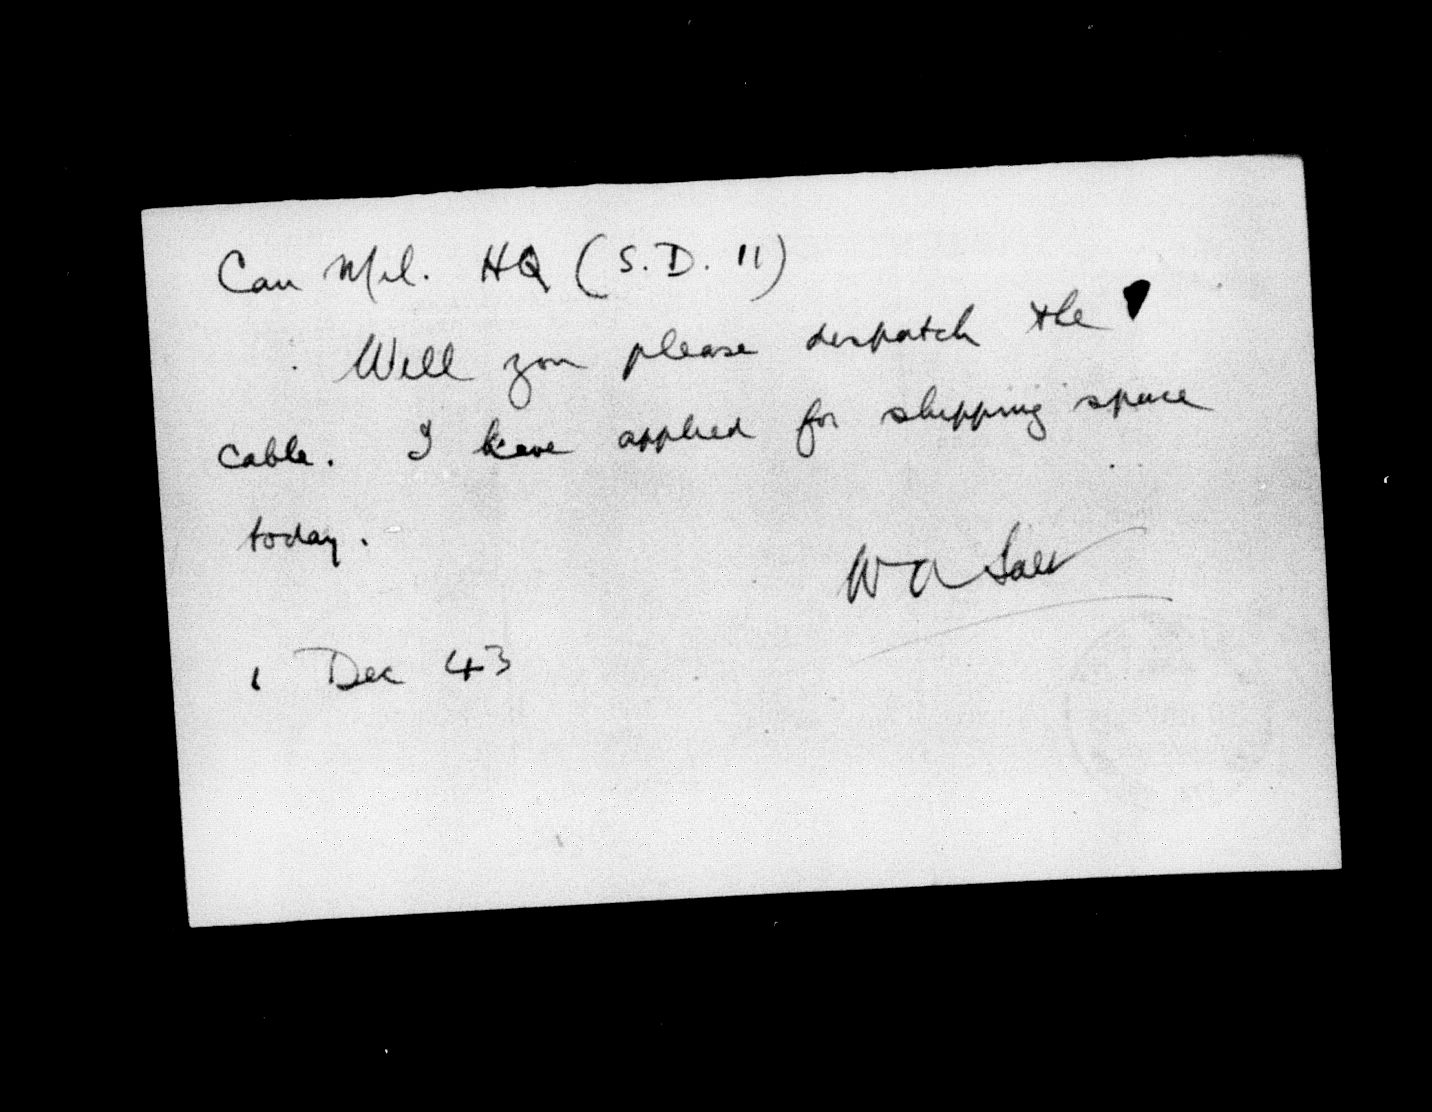 Can Mil. HQ (S.D. 11)
Will you please despatch the
cable. I have applied for shipping space
today.
W A Salt
1 Dec 43